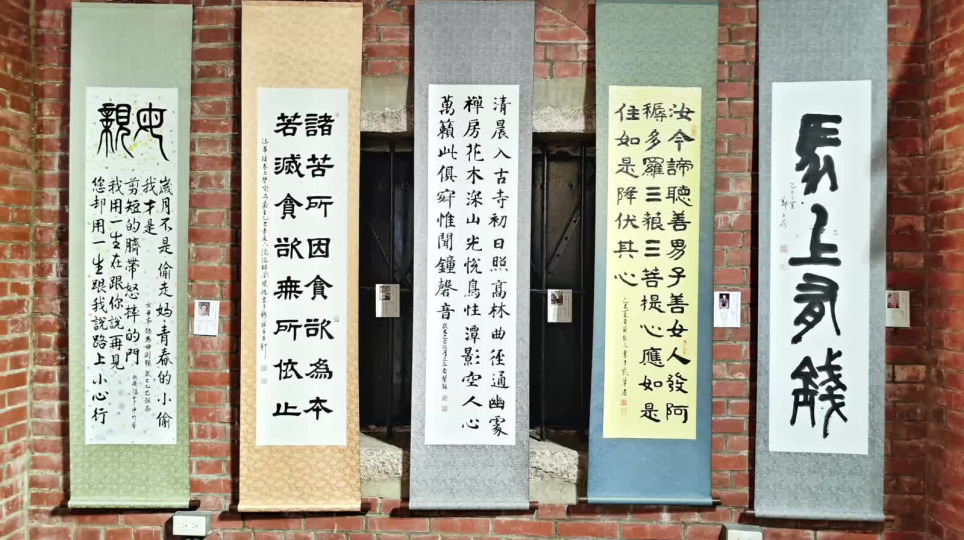 馬上有錢
汝今諦聽善男子善女人發阿
耨多羅三藐三菩提心應如是
住如是降伏其心
清晨入古寺初日照高林曲徑通幽處
禪房花木深山光悅鳥性潭影空人心
萬籟此俱寂惟聞鐘磬音
諸苦所因貪欲為本
若滅貪欲無所依止
母親
歲月不是偷走媽〻青春的小偷
我才是
剪短的臍帶怒摔的門
我用一生在跟你說再見
您却用一生跟我說路上小心行